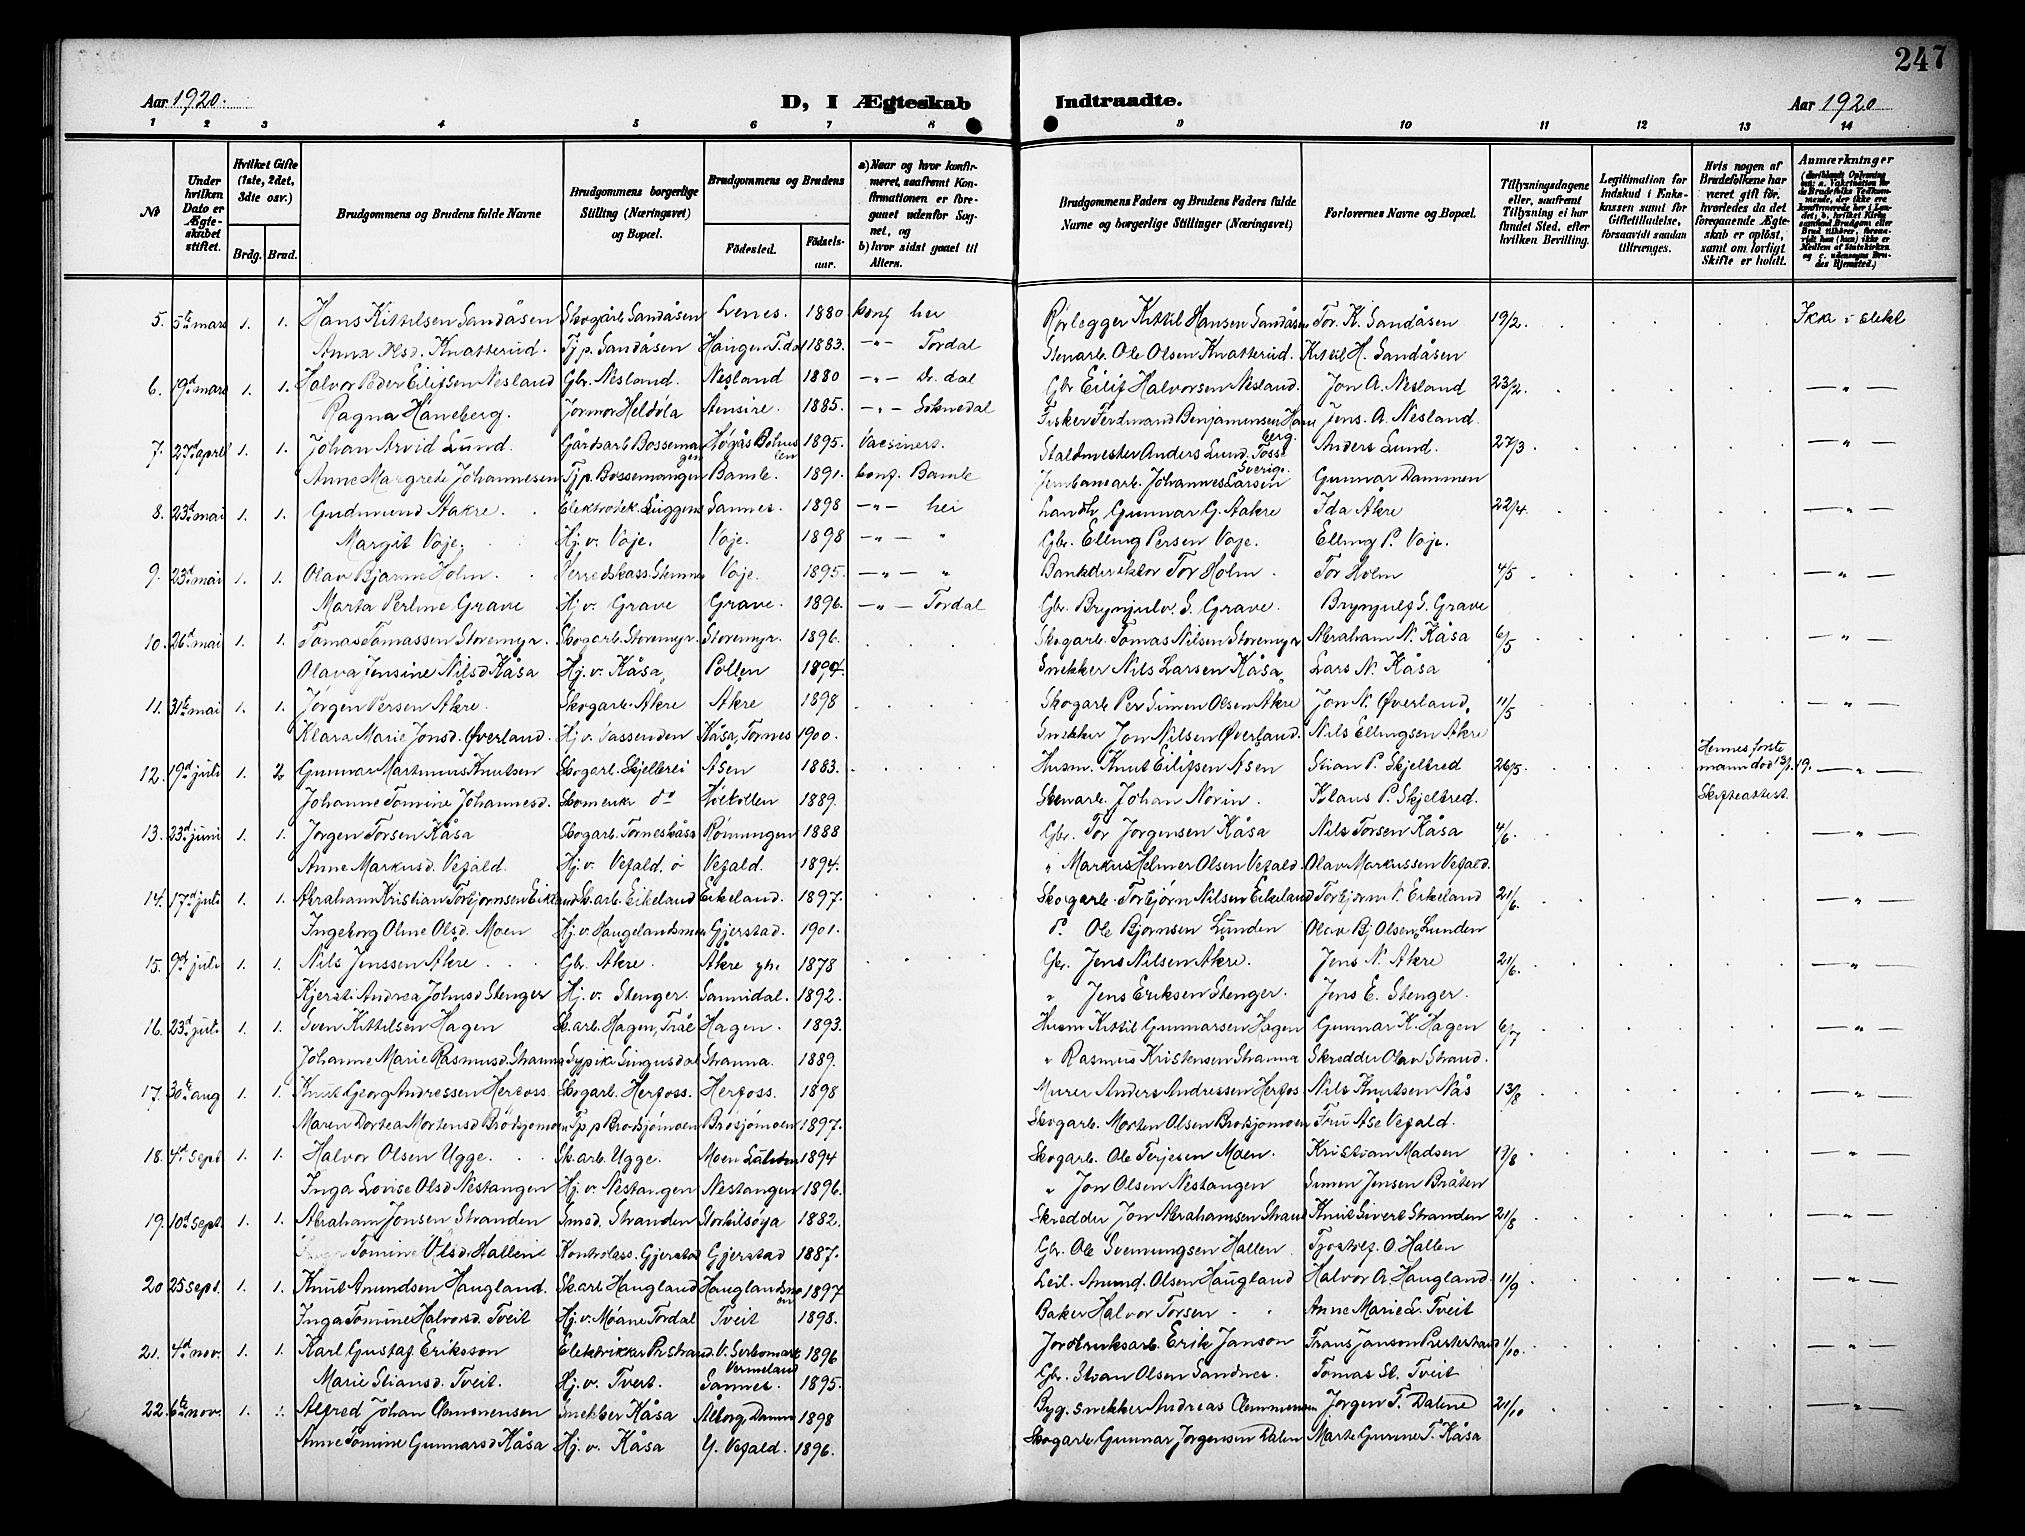 247
Aar 1920. D, I Ægteskab Indtraadte. Aar 1920
1 2 3 4 5 6 7 8 9 10 11 12 13 14
No
Under hvilken Dato er Ægteskabet stiftet.
Hvilket Gifte (1ste, 2det, 3die osv.)
Brdg. Brud.
Brudgommens og Brudens fulde Navne
Brudgommens borgerlige Stilling (Næringsvei) og Bopæl.
Brudgommens og Brudens
Fødested. Fødselsaar.
a) Naar og hvor konfirmeret, saafremt Konfirmationen er foregaaet udenfor Sognet, og
b) hvor sidst gaaet til Alters.
Brudgommens Faders og Brudens Faders fulde Navne og borgerlige Stillinger (Næringsvei)
Forlovernes Navne og Bopæl.
Tillysningsdagene eller, saafremt Tillysning ei har fundet Sted, efter hvilken Bevilling.
Legitimation for Indskud i Enkekassen samt for Giftetilladelse, forsaavidt saadan tiltrænges.
Hvis nogen af Brudefolkene har været gift før, hvorledes da det foregaaende Ægteskab er opløst, samt om lovligt Skifte er holdt.
Anmærkninger
5. 5te mars 1. 1. Hans Kittilsen Sandåsen Skogarb Sandåsen Lenes. 1880 konf her Rørlegger Kittil Hansen Sandåsen Tor. K. Sandåsen 19/2. Ikke i slekt
Anna Olsd. Knatterud. Tj. p. Sandåsen 1883. -"- Tordal Stenarb. Ole Olsen Knatterud. Kittil H. Sandåsen
6. 19d mars 1. 1. Halvor Peder Eilifsen Nesland Gbr. Nesland. Nesland 1880 -"- Dr. dal Gbr Eilif Halvorsen Nesland. Jon A. Nesland 23/2. — " —
Ragna Haneberg. 1885. -"- Soknedal Fisker Ferdinand Benjaminsen Haneberg. Jens. A. Nesland.
7. 27d april 1. 1. Johan Arvid Lund. Gårdsarb Bossemangen 1895. Vacsinert. Staldmester Anders Lund. Anders Lund. 27/3 — " —
Anne Margrete Johannesen Tj p. Bossemangen Bamle. 1891. konf. Bamle Jernbanearb. Johannes Larsen Gunnar Dammen
8. 23d mai 1. 1. Gudmund Aakre. Sannes. 1898 -"- her Landh. Gunnar G. Aakre Ida Åkre 22/4. — " —
Margit Voje. Hj. v. Voje. Voje. 1898 -"- " Gbr. Elling Persen Voje. Elling P. Voje.
9. 23d mai 1. 1. Olav Bjarne Holm. Voje. 1895. -"- " Bankdirektør Tor Holm. Tor Holm 4/5 — " —
Marta Perline Grave Hj. v. Grave Grave. 1896. -"- Tordal Gbr. Brynjulv. S. Grave. Brynjulf S. Grave
10. 26d mai 1. 1. Tomas Tomassen Storemyr. Skogarb. Storemyr. Storemyr. 1896. Skogarb. Tomas Nilsen Storemyr Abraham N. Kåsa 6/5 — " —
Olava Jensine Nilsd Kåsa Hj. v. Kåsa, Pollen 1894. Snekker Nils Larsen Kåsa, Lars N. Kåsa
11. 31te mai 1. 1. Jørgen Persen Åkre. Skogarb. Åkre Åkre 1898 Skogarb Per Simen Olsen Åkre Jon N. Øverland, 11/5 — " —
Klara Marie Jonsd. Øverland. Hj. v. Vassenden Kåsa, Tornes 1900. Snekker Jon Nilsen Øverland. Nils Ellingsen Åkre
12. 19d juli 1. 2 Gunnar Martinius Knutsen Skogarb. Skjelbrei Åsen 1883. Husm. Knut Eilifsen Åsen Stian P. Skjelbred 26/5. Hennes første mann død 13/1.19. — " —
Johanne Tomine Johannesd. do 1889. Stenarb. Johan Norin. Klaus P. Skjelbred. Skifteattest.
13. 23d juni 1. 1. Jørgen Torsen Kåsa Skogarb. Torneskåsa Rønningen 1888 Gbr. Tor Jørgensen Kåsa Nils Torsen Kåsa 4/6. — " —
Anne Markusd. Vefald. Hj. v. Vefald. ø Vefald. 1894. " Markus Helmer Olsen Vefald. Olav Markussen Vefald.
14. 17d juli 1. 1. Abraham Kristian Torbjørnsen Eikeland Sk. arb. Eikeland Eikeland. 1897. Skogarb. Torbjørn Nilsen Eikeland Torbjørn N. Eikeland 21/6. — " —
Ingeborg Oline Olsd. Moen Hj. v. Haugelandsmoen Gjerstad. 1901. Ole Bjørnsen Lunden Olav Bj Olsen, Lunden
15. 9d juli 1. 1. Nils Jenssen Åkre. Gbr. Åkre. Åkre yh. 1878 Gbr. Jens Nilsen Åkre. Jens N. Åkre 21/6. — " —
Kjersti Andrea Johnsd Stenger Hj. v. Stenger. Sannidal. 1892. " Jens Eriksen Stenger. Jens E. Stenger.
16. 23d juli. 1. 1. Sven Kittilsen Hagen Sk. arb. Hagen, Tråe Hagen. 1893. Husm Kittil Gunnarsen Hagen Gunnar K. Hagen 6/7 — " —
Johanne Marie Rasmusd. Stranna Sypike Singusdal Stranna. 1889. " Rasmus Kristensen Stranna Skredder Olav Strand.
17. 30te aug 1. 1. Knut Georg Andressen Herfoss. Skogarb. Herfoss. Herfoss. 1898 Murer Anders Andressen Herfos Nils Knutsen Nås 13/8 — " —
Maren Dortea Mortensd Brødsjomoen Tj. p Brødsjømoen Brøsjømoen 1897. Skogarb. Morten Olsen Brødsjomoen Fru Åse Vefald.
18. 4d sept 1. 1. Halvor Olsen Ugge. Sk. arb. Ugge. Moen Lunden 1894 Skogarb. Ole Terjesen Moen. Kristian Madsen 17/8 — " —
Inga Lovise Olsd Nestangen Hj. v. Nestangen Nestangen 1896. " Jon Olsen Nestangen Simen Jensen Bråten
19. 10d sept. 1. 1. Abraham Jonsen Stranden Smed. Stranden Storkilsøya 1882. Skredder Jon Abrahamsen Strand Knut Sivert Stranden 21/8 — " —
Tomine Olsd. Hallen Kontroless. Gjerstad Gjerstad 1887. Gbr. Ole Svenungsen Hallen Tjostolf. O. Hallen
20 25 sept. 1. 1. Knut Anundsen Haugland. Sk. arb Haugland Hauglandsmoen 1897 Leil. Anund. Olsen Haugland Halvor A. Haugland. 11/9 — " —
Inga Tomine Halvorsd. Tveit Hj. v. Moane Tordal Tveit 1898. Baker Halvor Torsen Anne Marie L. Tveit
21. 4d nov. 1. 1. Karl Gustaf Eriksson Elektrikker Prstrand. Vermeland 1896 Jordbruksarb. Erik Janson Frans Janson Presterstrand 1/10. — " —
Marie Stiansd. Tveit. Hj. v. Tveit. Sannes. 1895. Gbr. Stian Olsen Sandnes. Tomas St. Tveit
22. 6te nov. 1. 1. Alfred Johan Clemmensen Snekker Kåsa Ålborg, Danm 1898 Byg. snekker Andreas Clemmensen Jørgen T. Dalene 21/10 — " —
Anne Tomine Gunnarsd Kåsa Hj. v. Kåsa Y. Vefald. 1896. Skogarb Gunnar Jørgensen Dalen Marte Gurine T. Kåsa